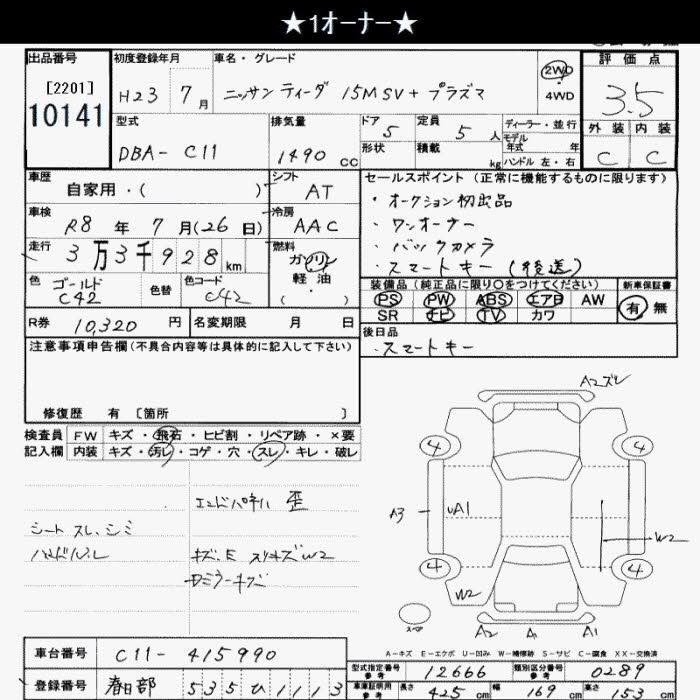 ★1オーナー★
出品番号
[2201]
10141
初度登録年月
H23 7月
車名・グレード
ニッサン ティーダ 15M SV+プラズマ
2WD
4WD
評価点
3.5
外装 内装
C C
型式
DBA- C11
排気量
1490 cc
ドア 5
形状
定員 5 人
積載 kg
ディーラー・並行
モデル年式 年
ハンドル 左・右
車歴
自家用・( )
シフト
AT
車検
R8 年 7 月(26 日)
冷房
AAC
走行
3万3千928 km
燃料
ガソリン
軽油
・( )
色 ゴールド
C42
色替
色コード
C42
R券 10,320 円
名変期限 月 日
セールスポイント(正常に機能するものに限ります)
・オークション初出品
・ワンオーナー
・バックカメラ
・スマートキー(後送)
装備品(純正品に限り○をつけてください)
PS PW ABS エアB AW
SR ナビ TV カワ
新車保証書
有 無
後日品
・スマートキー
注意事項申告欄(不具合内容等は具体的に記入して下さい)
修復歴 有 [箇所 ]
検査員 記入欄
FW キズ・飛石・ヒビ割・リペア跡・×要
内装 キズ・汚レ・コゲ・穴・スレ・キレ・破レ
エンドパネル 歪
シート スレ、シミ
ハンドル スレ
キズ、E スリキズW2
ミラーキズ
A2ズレ
4
4
A3
A1
W2
4
4
W2
スペア
A2 A A1
A-キズ E-エクボ U-凹み W-補修跡 S-サビ C-腐食 XX-交換済
車台番号 C11- 415990
登録番号 春日部 535 ひ 1113
型式指定番号 参考 12666
類別区分番号 参考 0289
車庫証明用 参考 長さ 425 cm 幅 169 cm 高さ 153 cm